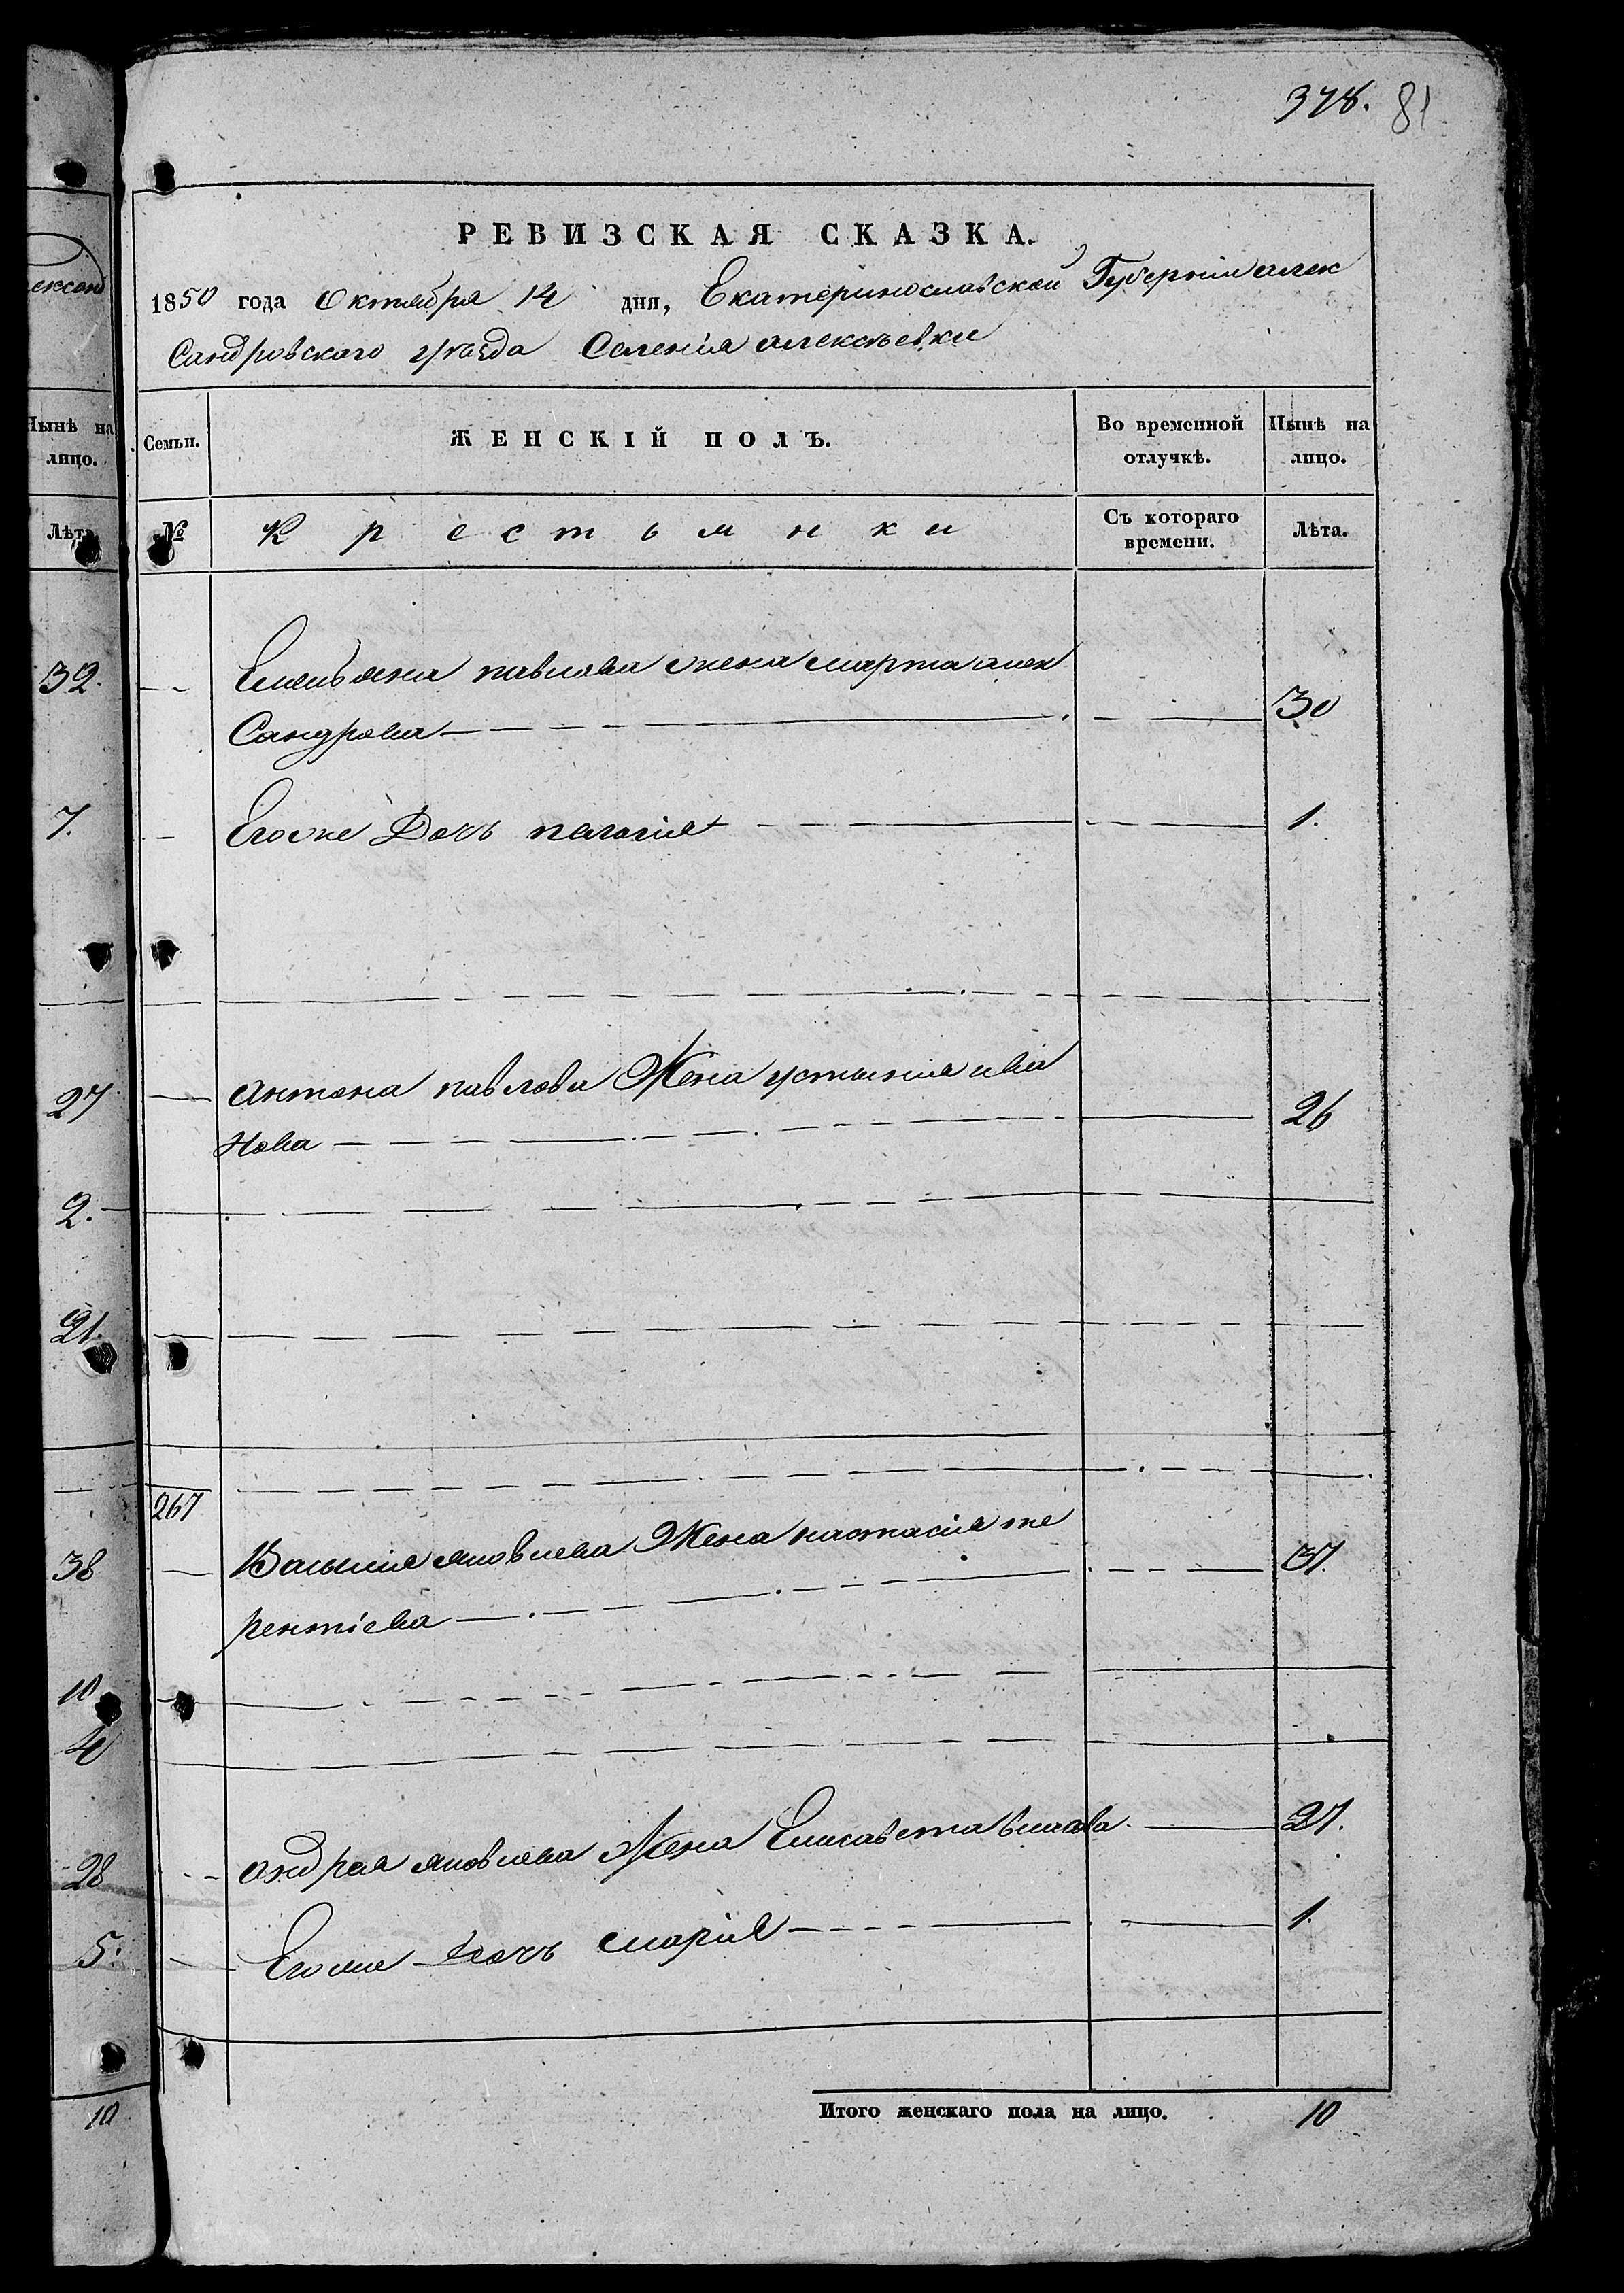 378. 81
РЕВИЗСКАЯ СКАЗКА.
1850 года Октября 14 дня, Екатеринославской Губерніи алек
Сандровского уѣзда Селенія алексѣевки
Нынѣ на лицо.
Семьи.
ЖЕНСКІЙ ПОЛЪ.
Во временной отлучкѣ.
Нынѣ на лицо.
Лѣта
№
Крестьянки
Съ котораго времени.
Лѣта.
32.
Емельяна павлова жена марта алек
Сандрова 30
7.
Егоже Дочь пелагия 1.
27
антона павлова Жена устыния ива
Нова 26
2.
21.
267
38
Василия яковлева Жена настасия те
рентіева 37.
10
4
28
андрея яковлева Жена Елисавета 27.
5.
Егоже дочь мария 1.
10
Итого женскаго пола на лицо. 10